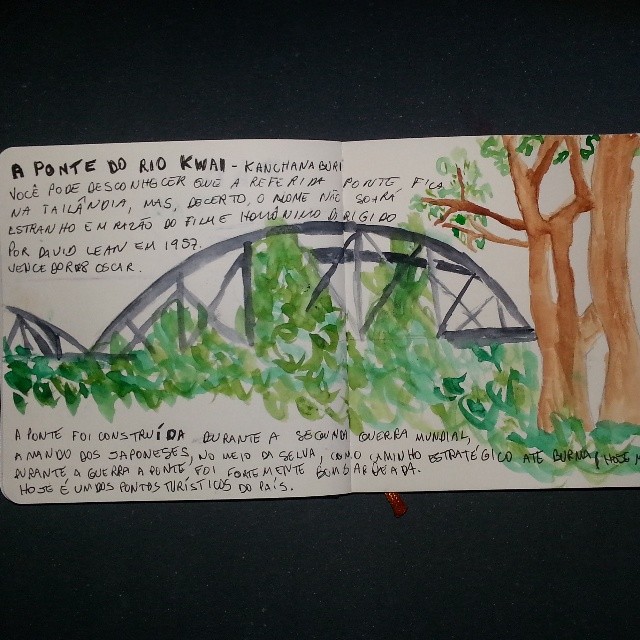 A PONTE DO RIO KWAI - KANCHANABURI
VOCÊ PODE DESCONHECER QUE A REFERIDA PONTE FICA
NA TAILÂNDIA, MAS, DECERTO, O NOME NÃO SOARÁ
ESTRANHO EM RAZÃO DO FILME HOMÔNIMO DIRIGIDO
POR DAVID LEAN EM 1957.
VENCEDOR OSCAR.
A PONTE FOI CONSTRUÍDA DURANTE A SEGUNDA GUERRA MUNDIAL,
A MANDO DOS JAPONESES, NO MEIO DA SELVA, COMO CAMINHO ESTRATÉGICO ATÉ BURMA
DURANTE A GUERRA A PONTE FOI FORTEMENTE BOMBARDEADA.
HOJE É UM DOS PONTOS TURÍSTICOS DO PAÍS.